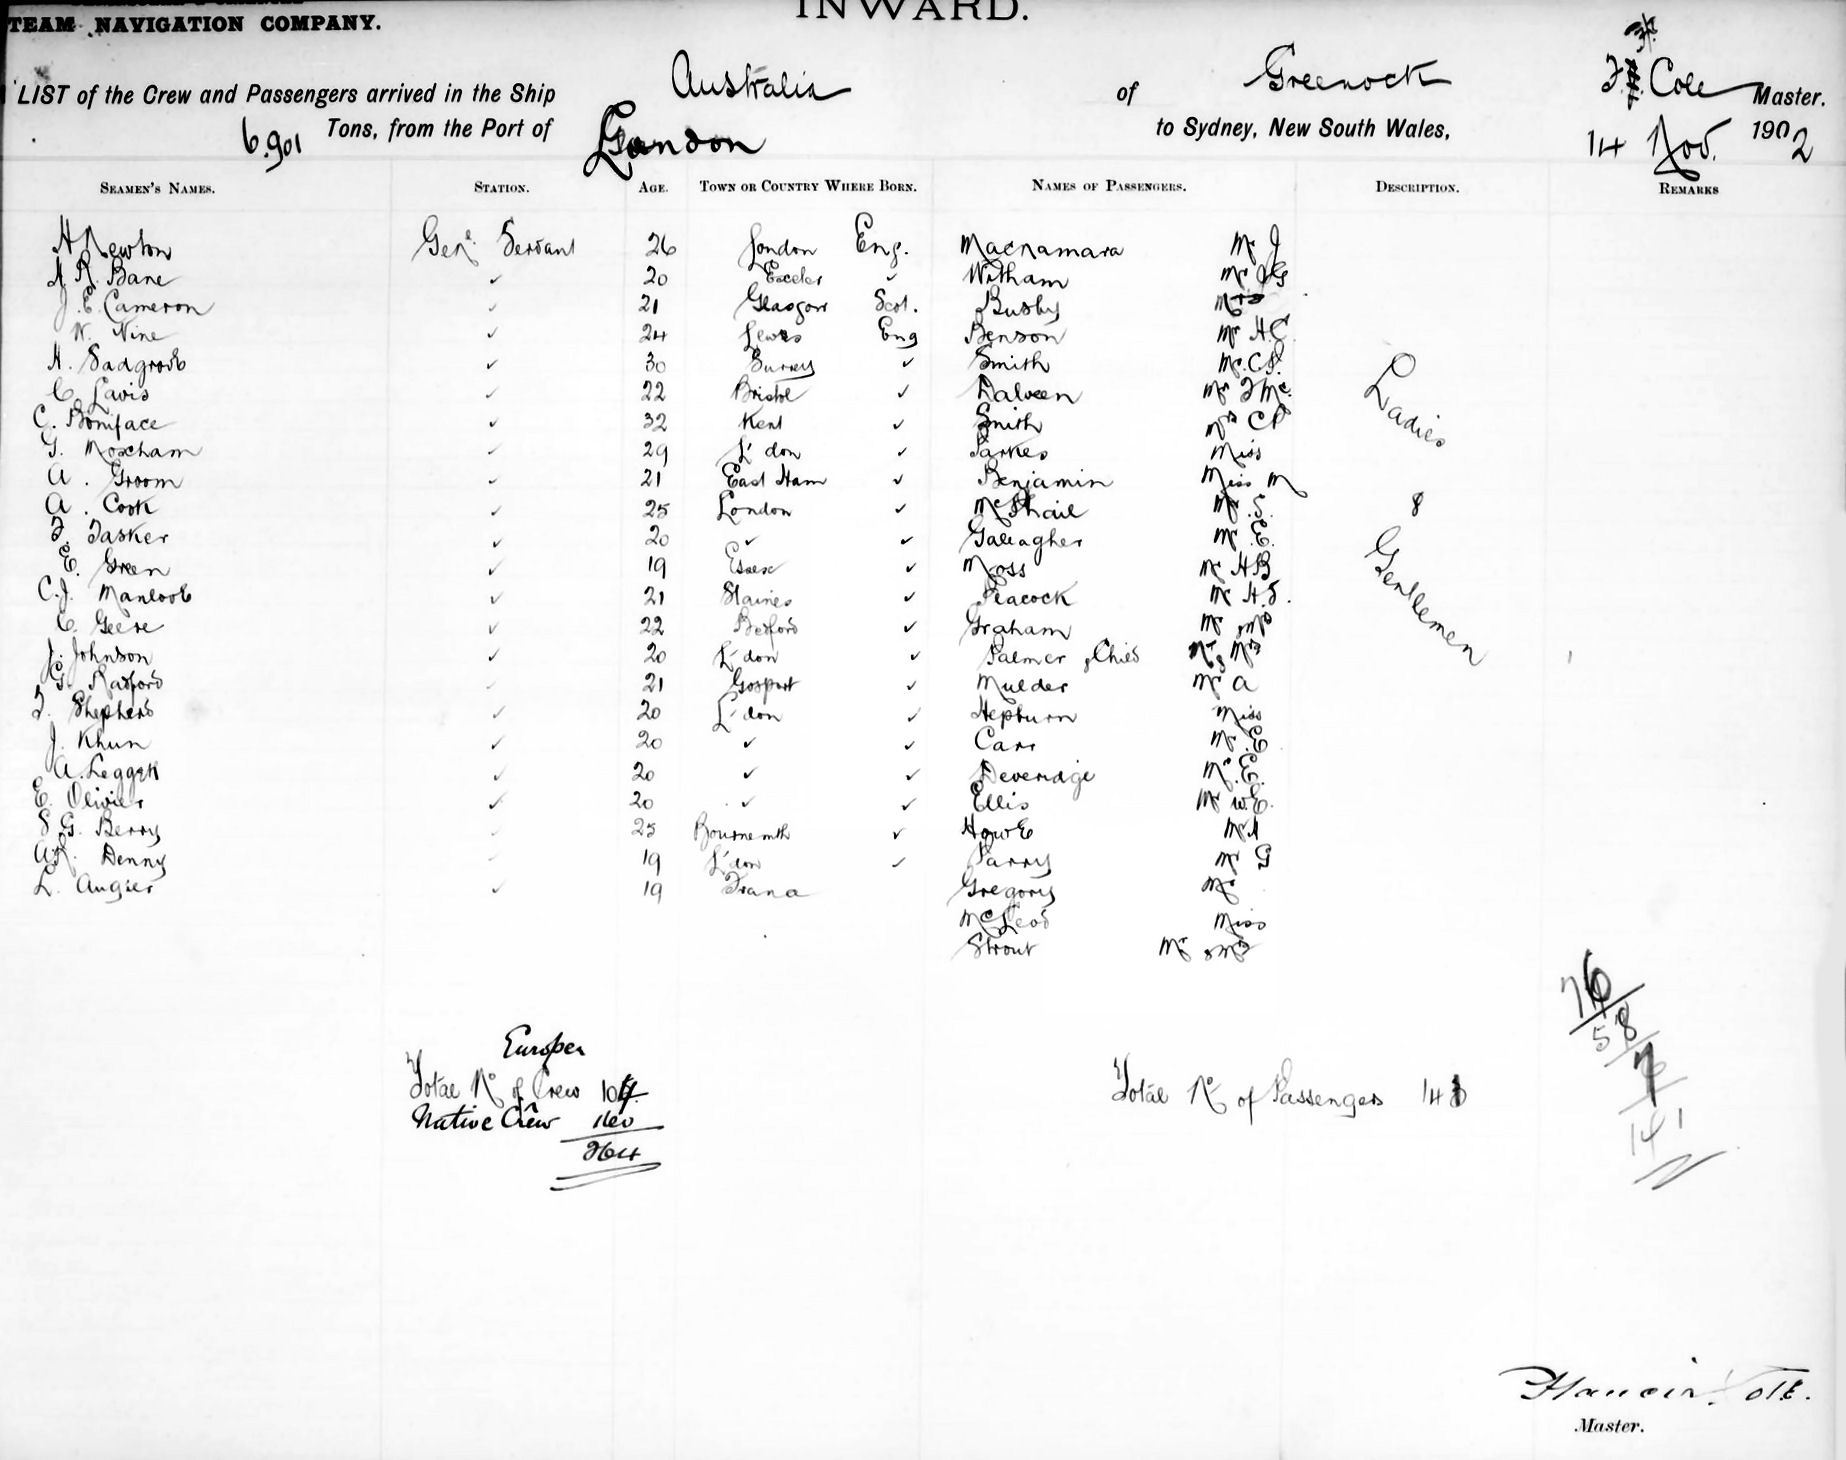 TEAM NAVIGATION COMPANY.
INWARD.
LIST of the Crew and Passengers arrived in the Ship Australia of Greenock F. Cole Master.
6.901 Tons, from the Port of London to Sydney, New South Wales, 14 Nov. 1902
SEAMEN'S NAMES. STATION. AGE. TOWN OR COUNTRY WHERE BORN. NAMES OF PASSENGERS. DESCRIPTION. REMARKS
H Newton Genl Servant 26 London Eng. Macnamara Mr J
A. R. Bane ✓ 20 Exeter ✓ Witham Mr J G
J. E. Cameron ✓ 21 Glasgow Scot. Busby Mrs
W. Nine ✓ 24 Lewes Eng Benson Mr H.C.
H. Sadgrove ✓ 30 Surrey ✓ Smith Mr. C.P.
C. Lavis ✓ 22 Bristol ✓ Dalveen Mr
C. Boniface ✓ 32 Kent ✓ Smith Mrs C P
G. Moxham ✓ 29 L'don ✓ Parkes Miss
A. Groom ✓ 21 East Ham ✓ Benjamin Miss M
A. Cook ✓ 25 London ✓ McPhail Mr. S.
F. Tasker ✓ 20 ✓ ✓ Gallagher Mr. E.
E. Green ✓ 19 Essex ✓ Moss Mr H B
C. J. Manlove ✓ 21 Staines ✓ Peacock Mr H. S.
C. Geere ✓ 22 Bedford ✓ Graham Mr & Mrs
J. Johnson ✓ 20 L'don ✓ Palmer & Child Mr & Mrs
G. Radford ✓ 21 Gosport ✓ Mulder Mr A
F. Shepherd ✓ 20 L'don ✓ Hepburn Miss
J. Khun ✓ 20 ✓ ✓ Carr Mr. E
A. Leggett ✓ 20 ✓ ✓ Deveridge Mr. E.
E. Olivier ✓ 20 ✓ ✓ Ellis Mr W.E.
S. G. Berry ✓ 25 Bournemth ✓ Howe Mr A
A. R. Denny ✓ 19 L'don ✓ Parry Mr G
L. Augier ✓ 19 Frana Gregory Mr
McLeod Miss
Strout Mr & Mrs
Ladies
&
Gentlemen
Europen
Total No of Crew 104
Native Crew 160
264
Total No of Passengers 141
76
58
7
141
Francis Cole.
Master.